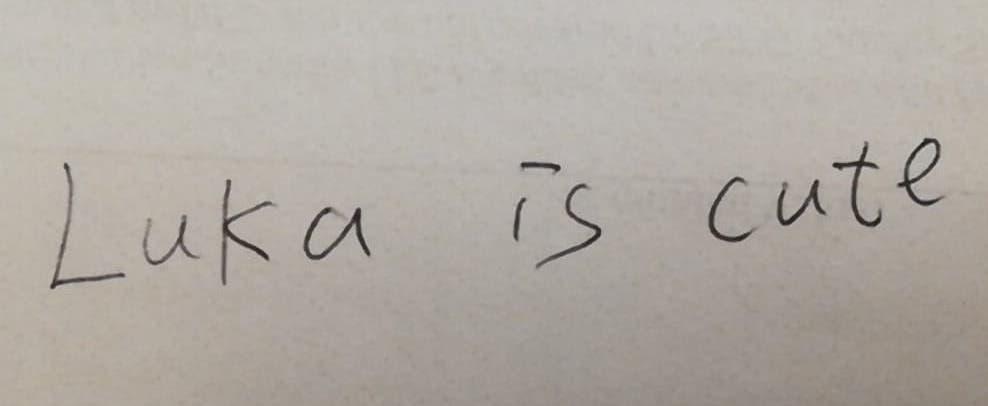 Luka is cute